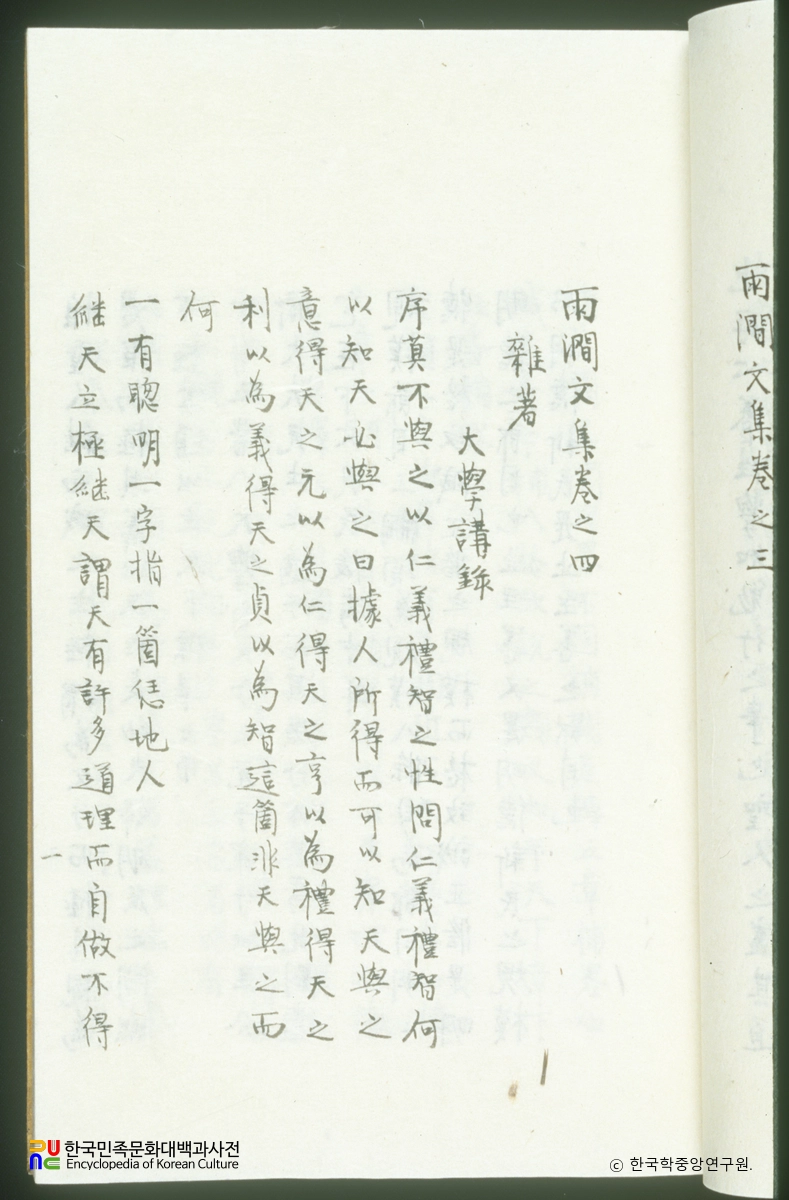 雨澗文集卷之三
雨澗文集卷之四
雜著
大學講錄
序莫不與之以仁義禮智之性問仁義禮智何
以知天必與之曰據人所得而可以知天與之
意得天之元以為仁得天之亨以為禮得天之
利以為義得天之貞以為智這箇非天與之而
何
一有聰明一字指一箇恁地人
繼天立極繼天謂天有許多道理而自做不得
一
한국민족문화대백과사전
Encyclopedia of Korean Culture
ⓒ 한국학중앙연구원.